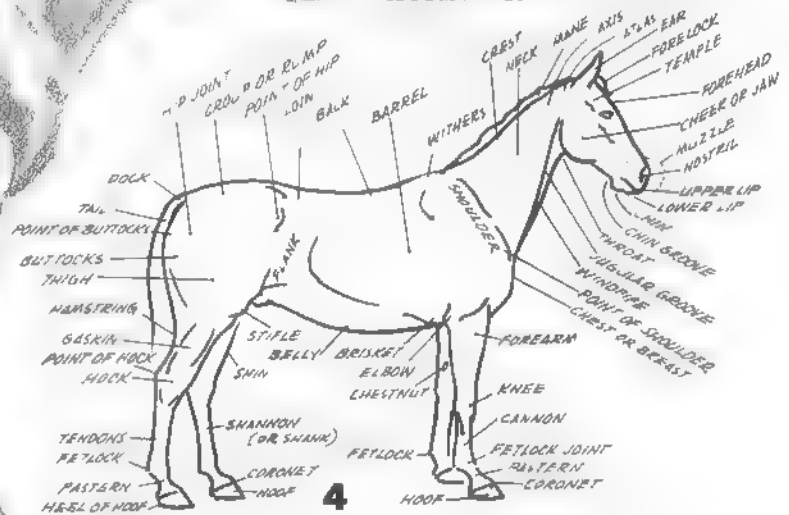 HIP JOINT
CROUP OR RUMP
POINT OF HIP
LOIN
BACK
BARREL
WITHERS
CREST
NECK
MANE
AXIS
ATLAS
EAR
FORELOCK
TEMPLE
FOREHEAD
CHEEK OR JAW
MUZZLE
NOSTRIL
UPPER LIP
LOWER LIP
CHIN
CHIN GROOVE
THROAT
JUGULAR GROOVE
WINDPIPE
POINT OF SHOULDER
CHEST OR BREAST
SHOULDER
DOCK
TAIL
POINT OF BUTTOCKS
BUTTOCKS
THIGH
FLANK
HAMSTRING
GASKIN
POINT OF HOCK
HOCK
STIFLE
BELLY
SHIN
BRISKET
ELBOW
CHESTNUT
FOREARM
KNEE
CANNON
SHANNON
(OR SHANK)
TENDONS
FETLOCK
PASTERN
HEEL OF HOOF
CORONET
HOOF
FETLOCK
FETLOCK JOINT
PASTERN
CORONET
HOOF
4